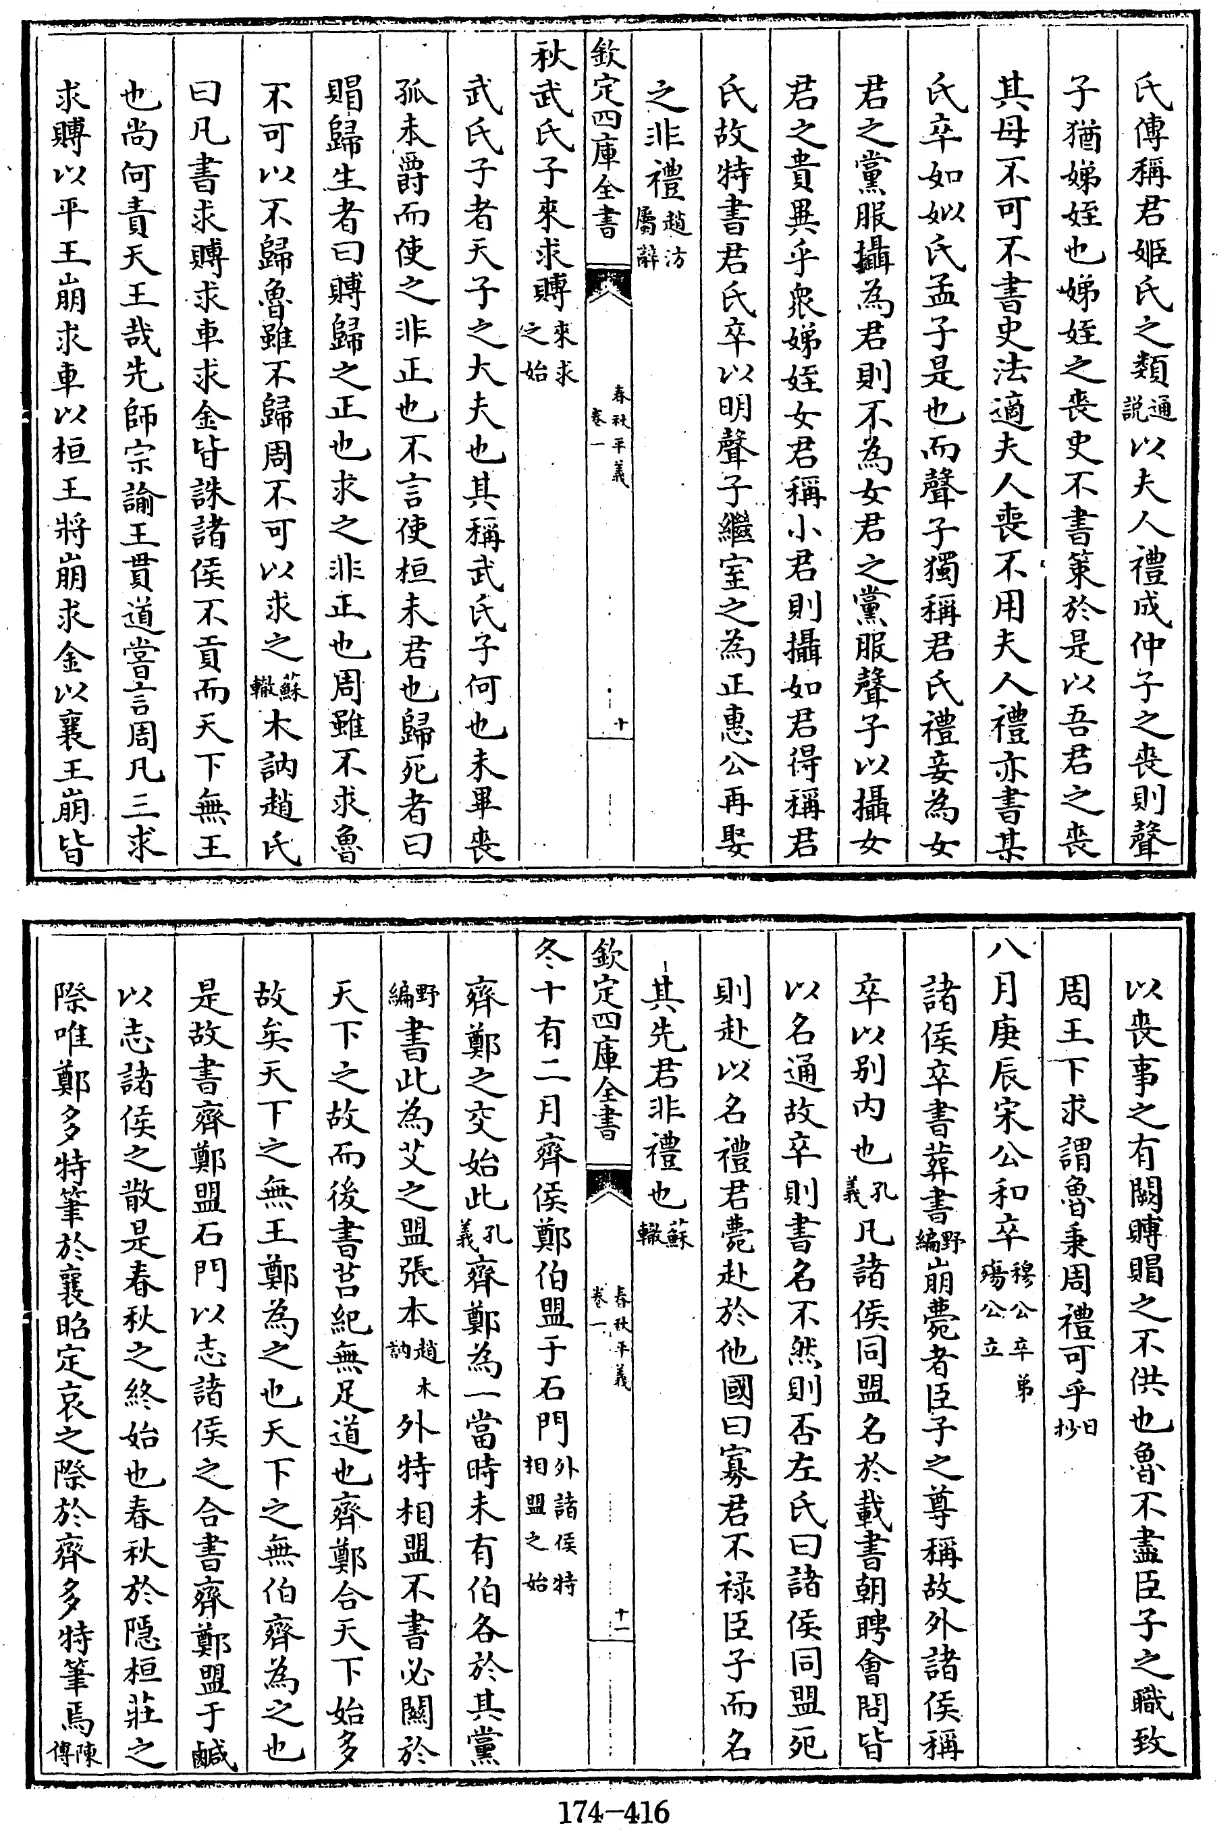 氏傳稱君姬氏之類通說以夫人禮成仲子之喪則聲
子猶娣姪也娣姪之喪史不書策於是以吾君之喪
其母不可不書史法適夫人喪不用夫人禮亦書某
氏卒如姒氏孟子是也而聲子獨稱君氏禮妾為女
君之黨服攝為君則不為女君之黨服聲子以攝女
君之貴異乎衆娣姪女君稱小君則攝如君得稱君
氏故特書君氏卒以明聲子繼室之為正惠公再娶
之非禮趙汸屬辭
欽定四庫全書
春秋平義
卷一
十
秋武氏子來求賻來求之始
武氏子者天子之大夫也其稱武氏子何也未畢喪
孤未爵而使之非正也不言使桓未君也歸死者曰
賵歸生者曰賻歸之正也求之非正也周雖不求魯
不可以不歸魯雖不歸周不可以求之蘇轍木訥趙氏
曰凡書求賻求車求金皆誅諸侯不貢而天下無王
也尚何責天王哉先師宗諭王貫道嘗言周凡三求
求賻以平王崩求車以桓王將崩求金以襄王崩皆
以喪事之有闕賻賵之不供也魯不盡臣子之職致
周王下求謂魯秉周禮可乎日抄
八月庚辰宋公和卒穆公卒弟殤公立
諸侯卒書葬書野編崩薨者臣子之尊稱故外諸侯稱
卒以别内也孔義凡諸侯同盟名於載書朝聘會問皆
以名通故卒則書名不然則否左氏曰諸侯同盟死
則赴以名禮君薨赴於他國曰寡君不禄臣子而名
其先君非禮也蘇轍
欽定四庫全書
春秋平義
卷一
十一
冬十有二月齊侯鄭伯盟于石門外諸侯特相盟之始
齊鄭之交始此孔義齊鄭為一當時未有伯各於其黨
野編書此為艾之盟張本趙木訥外特相盟不書必關於
天下之故而後書莒紀無足道也齊鄭合天下始多
故矣天下之無王鄭為之也天下之無伯齊為之也
是故書齊鄭盟石門以志諸侯之合書齊鄭盟于鹹
以志諸侯之散是春秋之終始也春秋於隱桓莊之
際唯鄭多特筆於襄昭定哀之際於齊多特筆焉陳傳
174-416